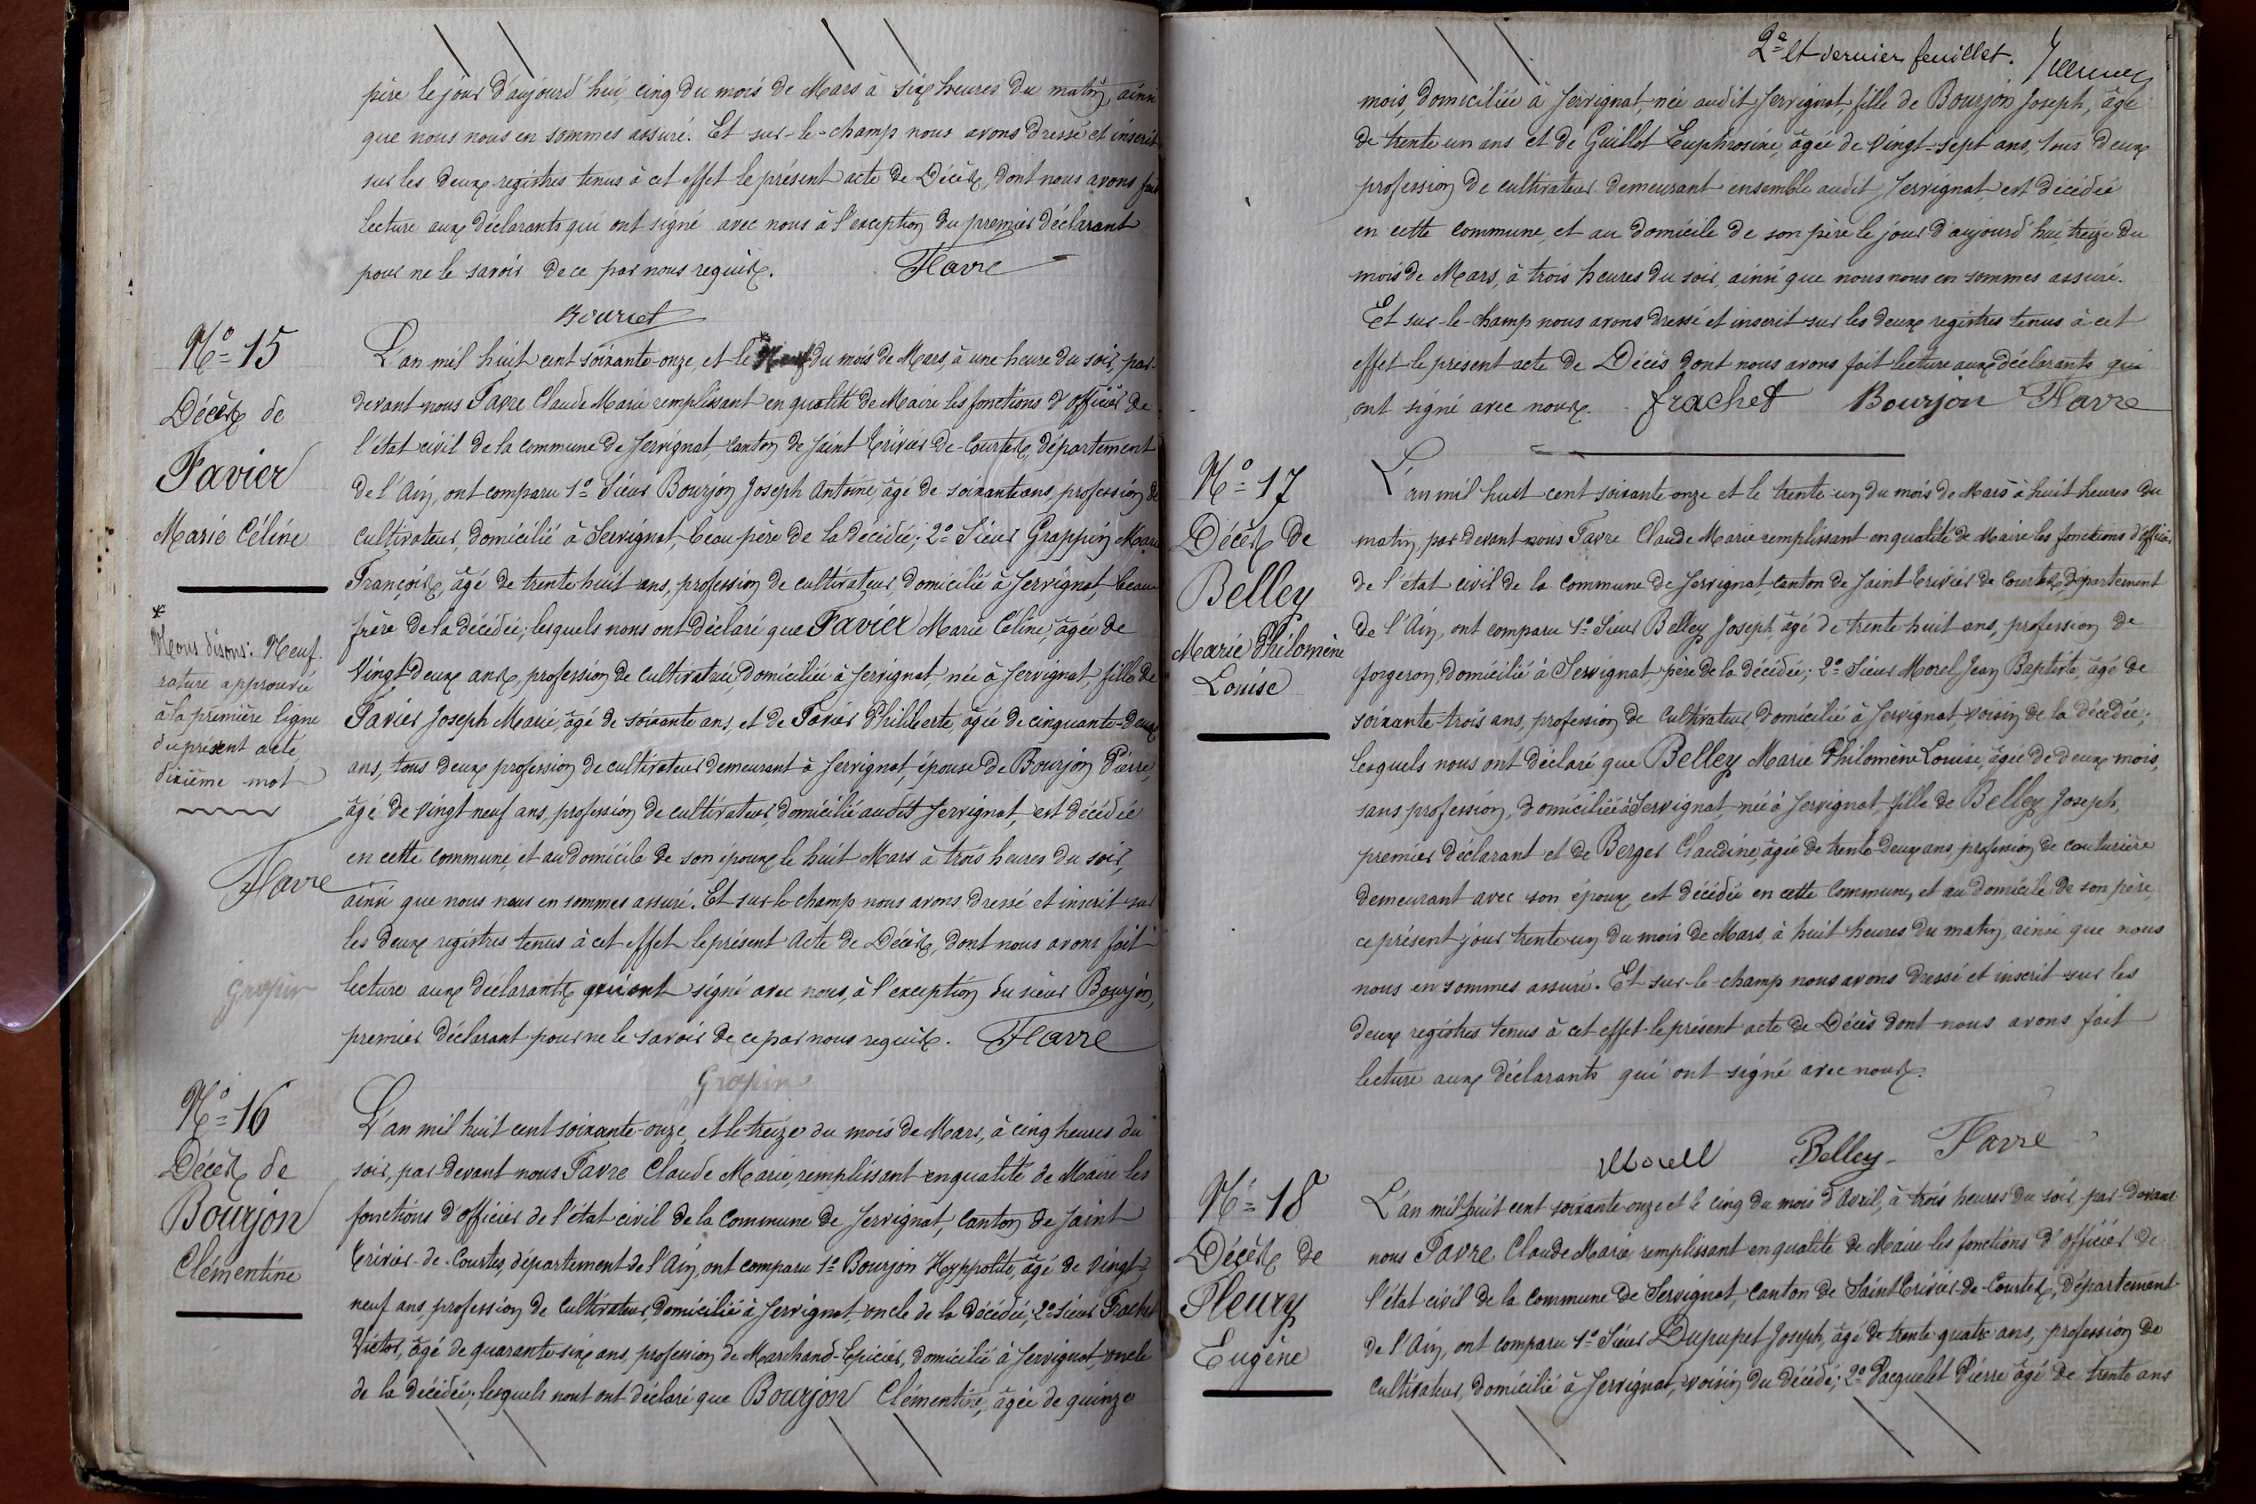 père le jour d'aujourd'hui, cinq du mois de Mars à six heures du matin, ainsi
que nous nous en sommes assuré. Et sur-le-champ nous avons dressé et inscrit
sur les deux registres tenus à cet effet le présent acte de Décès, dont nous avons fait
lecture aux déclarants qui ont signé avec nous à l'exception du premier déclarant
pour ne le savoir de ce par nous requis. Favre
Bouriet
N° 15
Décès de
Favier
Marie Céline
* Nous disons: Neuf.
rature approuvée
à la première ligne
du présent acte,
dixième mot
Favre
Gropin
L'an mil huit cent soixante-onze, et le * Neuf du mois de Mars, à une heure du soir, par-
devant nous Favre Claude Marie remplissant en qualité de Maire les fonctions d'officier de
l'état civil de la commune de Servignat, canton de Saint Trivier-de-Courtes, département
de l'Ain, ont comparu 1° Sieur Bourjon Joseph Antoine, âgé de soixante ans, profession de
cultivateur, domicilié à Servignat, beau-père de la décédée; 2° Sieur Grappin Marie
François, âgé de trente huit ans, profession de cultivateur, domicilié à Servignat, beau-
frère de la décédée; lesquels nous ont déclaré que Favier Marie Céline, âgée de
vingt deux ans, profession de cultivatrice, domiciliée à Servignat, née à Servignat, fille de
Favier Joseph Marie, âgé de soixante ans, et de Favier Philiberte, âgée de cinquante-deux
ans, tous deux profession de cultivateur demeurant à Servignat, épouse de Bourjon Pierre,
âgé de vingt neuf ans, profession de cultivateur, domicilié audit Servignat, est décédée
en cette commune, et au domicile de son époux, le huit Mars à trois heures du soir,
ainsi que nous nous en sommes assuré. Et sur-le-champ nous avons dressé et inscrit sur
les deux registres tenus à cet effet le présent Acte de Décès, dont nous avons fait
lecture aux déclarants qui ont signé avec nous, à l'exception du sieur Bourjon,
premier déclarant pour ne le savoir de ce par nous requis. Favre
Gropin
N° 16
Décès de
Bourjon
Clémentine
L'an mil huit cent soixante-onze, et le treize du mois de Mars, à cinq heures du
soir, par-devant nous Favre Claude Marie, remplissant en qualité de Maire les
fonctions d'officier de l'état civil de la Commune de Servignat, Canton de Saint
Trivier-de-Courtes, département de l'Ain, ont comparu 1° Bourjon Hyppolite, âgé de vingt-
neuf ans, profession de cultivateur, domicilié à Servignat, oncle de la décédée; 2° Sieur Frachet
Victor, âgé de quarante-six ans, profession de Marchand-Epicier, domicilié à Servignat, oncle
de la décédée; lesquels nout ont déclaré que Bourjon Clémentine, âgée de quinze
2e et dernier feuillet.
mois, domiciliée à Servignat, née audit Servignat, fille de Bourjon Joseph, âgé
de trente un ans et de Guillot Euphrosine, âgée de vingt-sept ans, tous deux
profession de cultivateur demeurant ensemble audit Servignat, est décédée
en cette commune, et au domicile de son père le jour d'aujourd'hui, treize du
mois de Mars, à trois heures du soir, ainsi que nous nous en sommes assuré.
Et sur-le-champ nous avons dressé et inscrit sur les deux registres tenus à cet
effet le présent acte de Décès dont nous avons fait lecture aux déclarants qui
ont signé avec nous. frachet Bourjon Favre
N° 17
Décès de
Belley
Marie Philomène
Louise
L'an mil huit cent soixante onze et le trente-un du mois de Mars à huit heures du
matin, par devant nous Favre Claude Marie remplissant en qualité de Maire les fonctions d'officier
de l'état civil de la Commune de Servignat, canton de Saint Trivier de Courtes, département
de l'Ain, ont comparu 1° Sieur Belley Joseph, âgé de trente-huit ans, profession de
forgeron, domicilié à Servignat, père de la décédée; 2° Sieur Morel Jean Baptiste, âgé de
soixante-trois ans, profession de cultivateur, domicilié à Servignat, voisin de la décédée;
lesquels nous ont déclaré que Belley Marie Philomène Louise, âgée de deux mois,
sans profession, domiciliée à Servignat, née à Servignat, fille de Belley Joseph,
premier déclarant et de Berger Claudine, âgée de trente-deux ans, profession de couturière
demeurant avec son époux, est décédée en cette Commune, et au domicile de son père,
ce présent jour trente un du mois de Mars, à huit heures du matin, ainsi que nous
nous en sommes assuré. Et sur-le-champ nous avons dressé et inscrit sur les
deux registres tenus à cet effet le présent acte de Décès dont nous avons fait
lecture aux déclarants qui ont signé avec nous.
Morell Belley Favre
N° 18
Décès de
Fleury
Eugène
L'an mil huit cent soixante-onze et le cinq du mois d'Avril, à trois heures du soir par-devant
nous Favre Claude Marie remplissant en qualité de Maire les fonctions d'officier de
l'état civil de la Commune de Servignat, canton de Saint Trivier-de-Courtes, département
de l'Ain, ont comparu 1° Sieur Dupupet Joseph, âgé de trente quatre ans, profession de
cultivateur, domicilié à Servignat, voisin du décédé; 2° Pacquelet Pierre âgé de trente ans